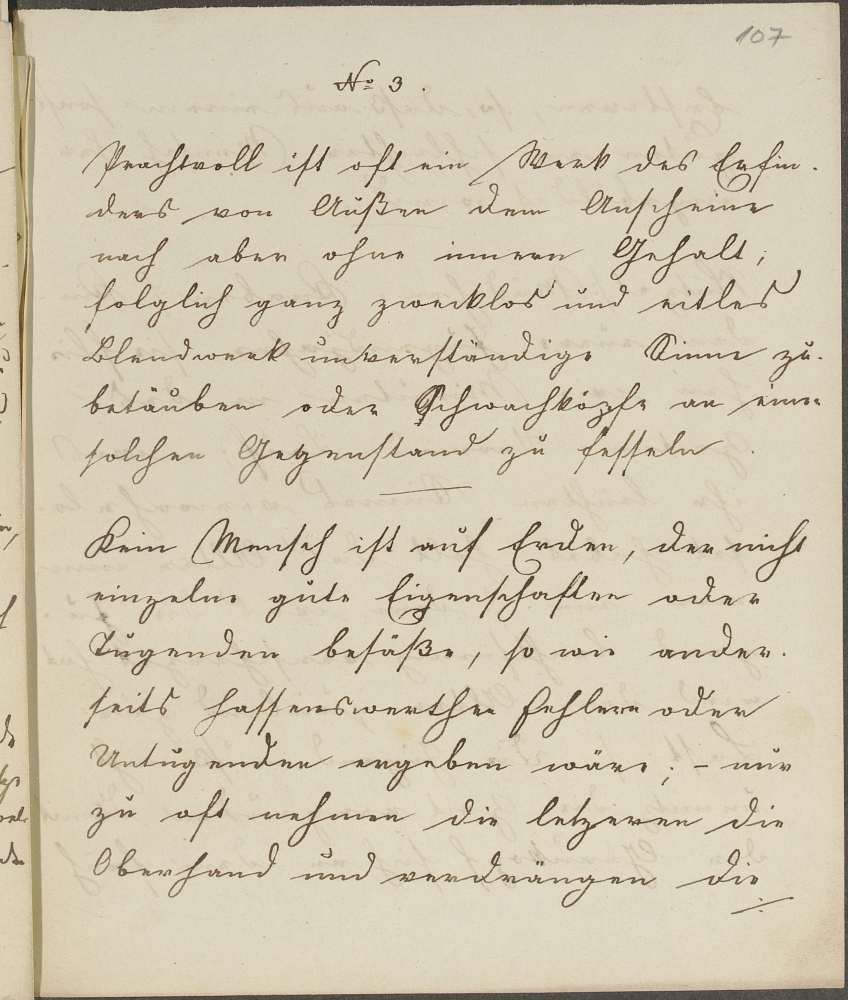 107
No 3.
Prachtvoll ist oft ein Werk des Erfin-
ders von Außen dem Anscheine
nach aber ohne innern Gehalt;
folglich ganz zwecklos und eitles
Blendwerk unverständige Sinne zu-
betäuben oder Schwachköpfe an einen
solchen Gegenstand zu fesseln.
Kein Mensch ist auf Erden, der nicht
einzelne gute Eigenschaften oder
Tugenden besäße, so wie ander-
seits hassenswerthen Fehlern oder
Untugenden ergeben wäre; – nur
zu oft nehmen die letzeren die
Oberhand und verdrängen die